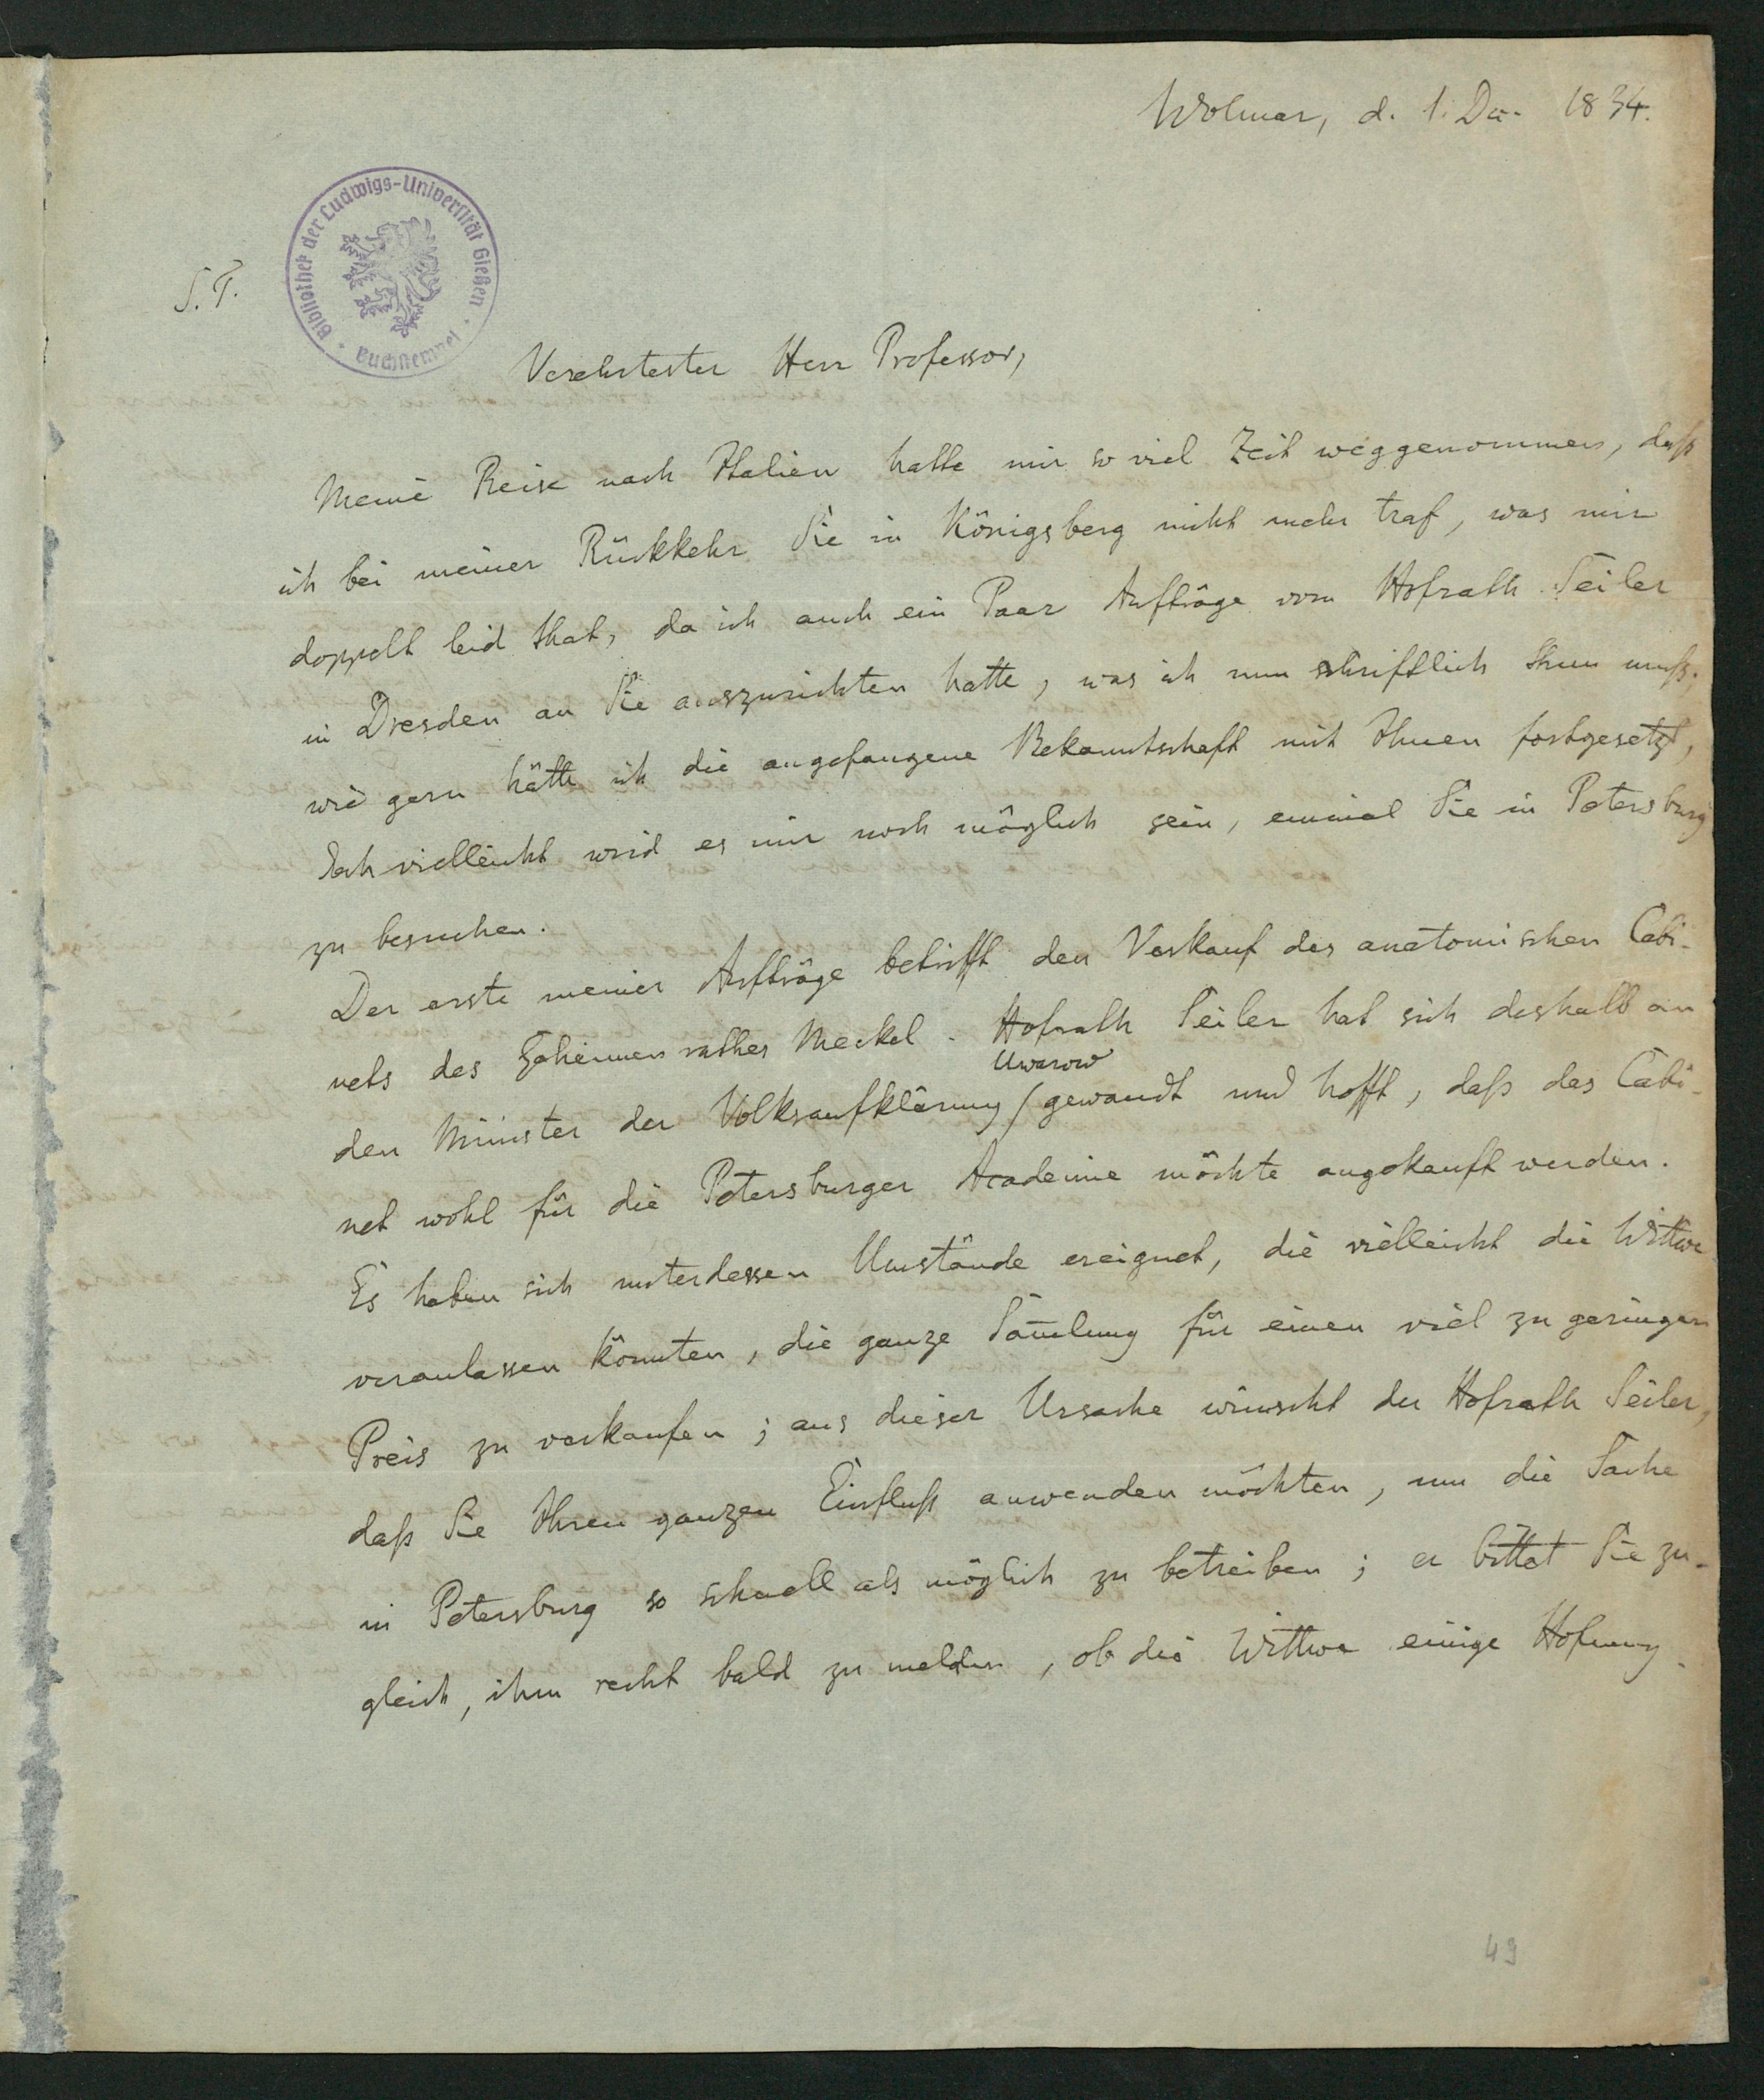 Wolmar, d. 1. Dec. 1834.
Bibliothek der Ludwigs-Universität Gießen · Buchstempel ·
S. T.
Verehrtester Herr Professor,
Meine Reise nach Italien hatte mir so viel Zeit weggenommen, daß
ich bei meiner Rückkehr Sie in Königsberg nicht mehr traf, was mir
doppelt leid that, da ich auch ein Paar Aufträge vom Hofrath Seiler
in Dresden an Sie auszurichten hatte, was ich nun schriftlich thun muß;
wie gern hätte ich die angefangene Bekanntschaft mit Ihnen fortgesetzt,
doch vielleicht wird es mir noch möglich sein, einmal Sie in Petersburg
zu besuchen.
Der erste meiner Aufträge betrifft den Verkauf des anatomischen Cabi-
nets des Geheimenrathes Meckel. Hofrath Seiler hat sich deshalb an
Uwarow
den Minister der Volksaufklärung / gewandt und hofft, daß das Cabi-
net wohl für die Petersburger Academie möchte angekauft werden.
Es haben sich unterdessen Umstände ereignet, die vielleicht die Wittwe
veranlassen könnten, die ganze Sam̄lung für einen viel zu geringen
Preis zu verkaufen; aus dieser Ursache wünscht der Hofrath Seiler,
daß Sie Ihren ganzen Einfluß anwenden möchten, um die Sache
in Petersburg so schnell als möglich zu betreiben; er bittet Sie zu-
gleich, ihm recht bald zu melden, ob die Wittwe einige Hofnung
49